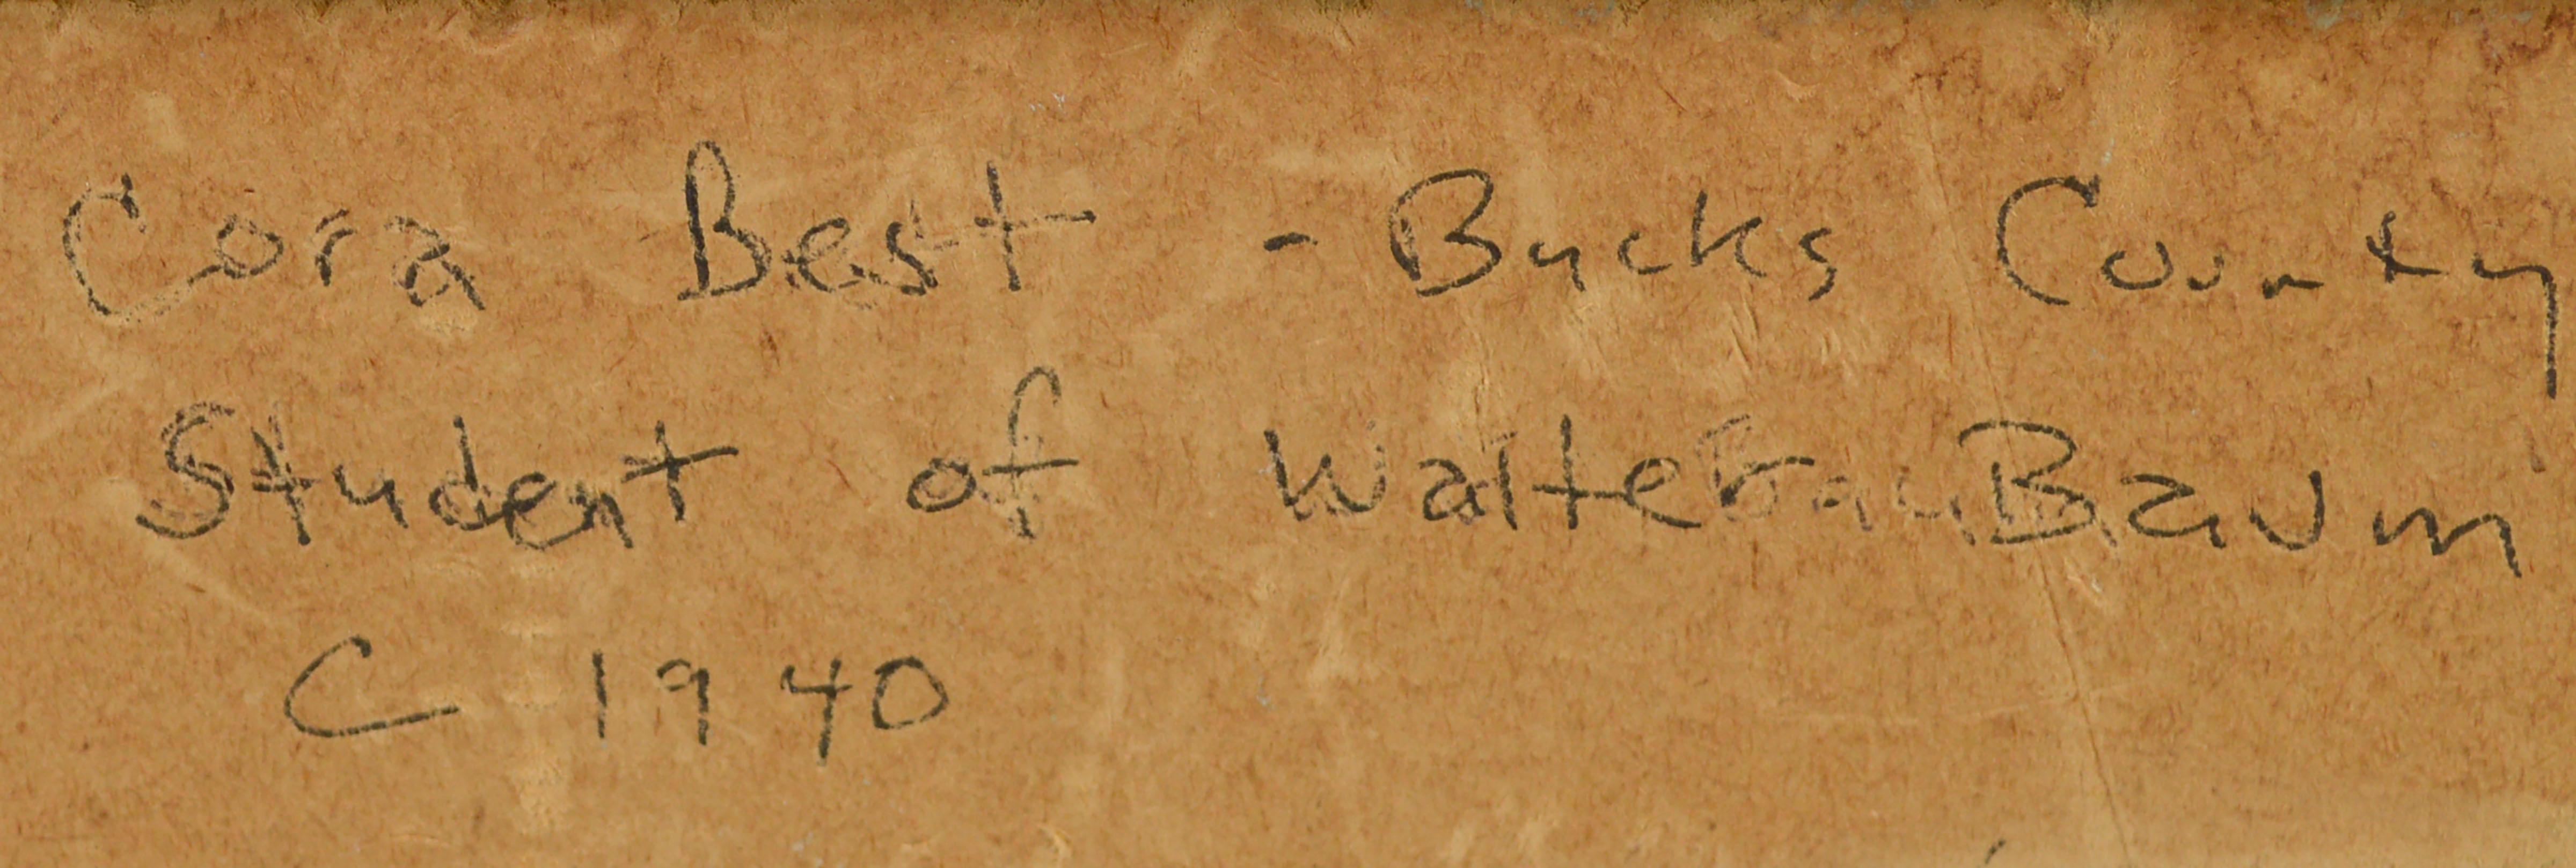 Cora Best - Bucks County
Student of Walter Baum
C 1940